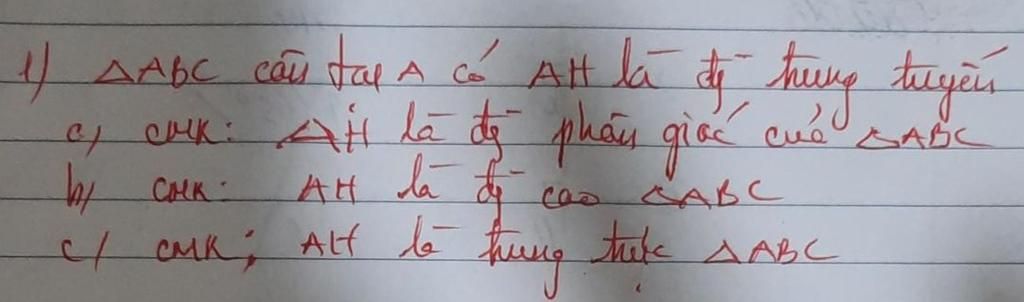 1) △ABC cân tại A có AH là đg̅ trung tuyến
a, CMR: AH là đg̅ phân giác của △ABC
b/ CMR: AH là đg̅ cao △ABC
c/ CMR: AH là trung trực △ABC